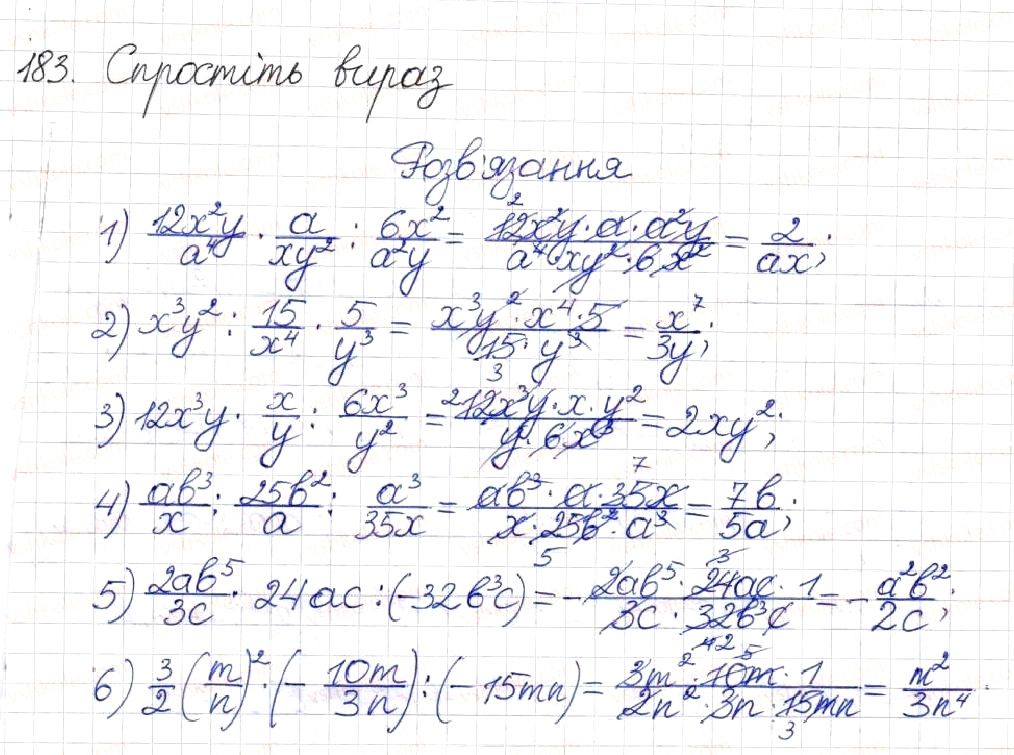 183. Спростіть вираз
Розв'язання
1) 12x²y/a⁴ · a/xy² : 6x²/a²y = 12x²y·a·a²y/a⁴·xy²·6x² 2 = 2/ax;
2) x³y² : 15/x⁴ · 5/y³ = x³y²·x⁴·5/15·y³ 3 = x⁷/3y;
3) 12x³y · x/y : 6x³/y² = 2 12x³y·x·y²/y·6x³ = 2xy²;
4) ab³/x : 25b²/a : a³/35x = ab³·a·35x/x·25b²·a³ 7 5 = 7b/5a;
5) 2ab⁵/3c · 24ac : (-32b³c) = - 2ab⁵·24ac·1/3c·32b³c 3 2 = - a²b²/2c;
6) 3/2 (m/n)² · (- 10m/3n) : (-15mn) = 3m²·10m·1/2n²·3n·15mn 5 3 = m²/3n⁴.